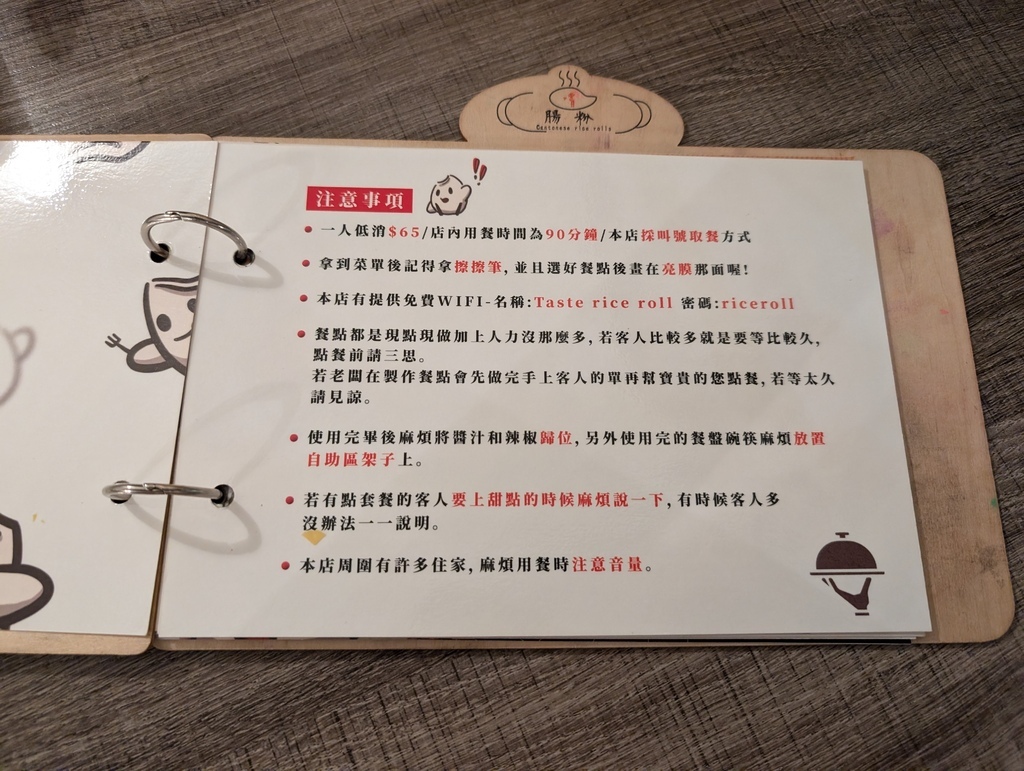 腸粉
Cantonese rice rolls
注意事項
一人低消$65/店內用餐時間為90分鐘/本店採叫號取餐方式
拿到菜單後記得拿擦擦筆，並且選好餐點後畫在亮膜那面喔！
本店有提供免費WIFI-名稱：Taste rice roll 密碼：riceroll
餐點都是現點現做加上人力沒那麼多，若客人比較多就是要等比較久，
點餐前請三思。
若老闆在製作餐點會先做完手上客人的單再幫寶貴的您點餐，若等太久
請見諒。
使用完畢後麻煩將醬汁和辣椒歸位，另外使用完的餐盤碗筷麻煩放置
自助區架子上。
若有點套餐的客人要上甜點的時候麻煩說一下，有時候客人多
沒辦法一一說明。
本店周圍有許多住家，麻煩用餐時注意音量。